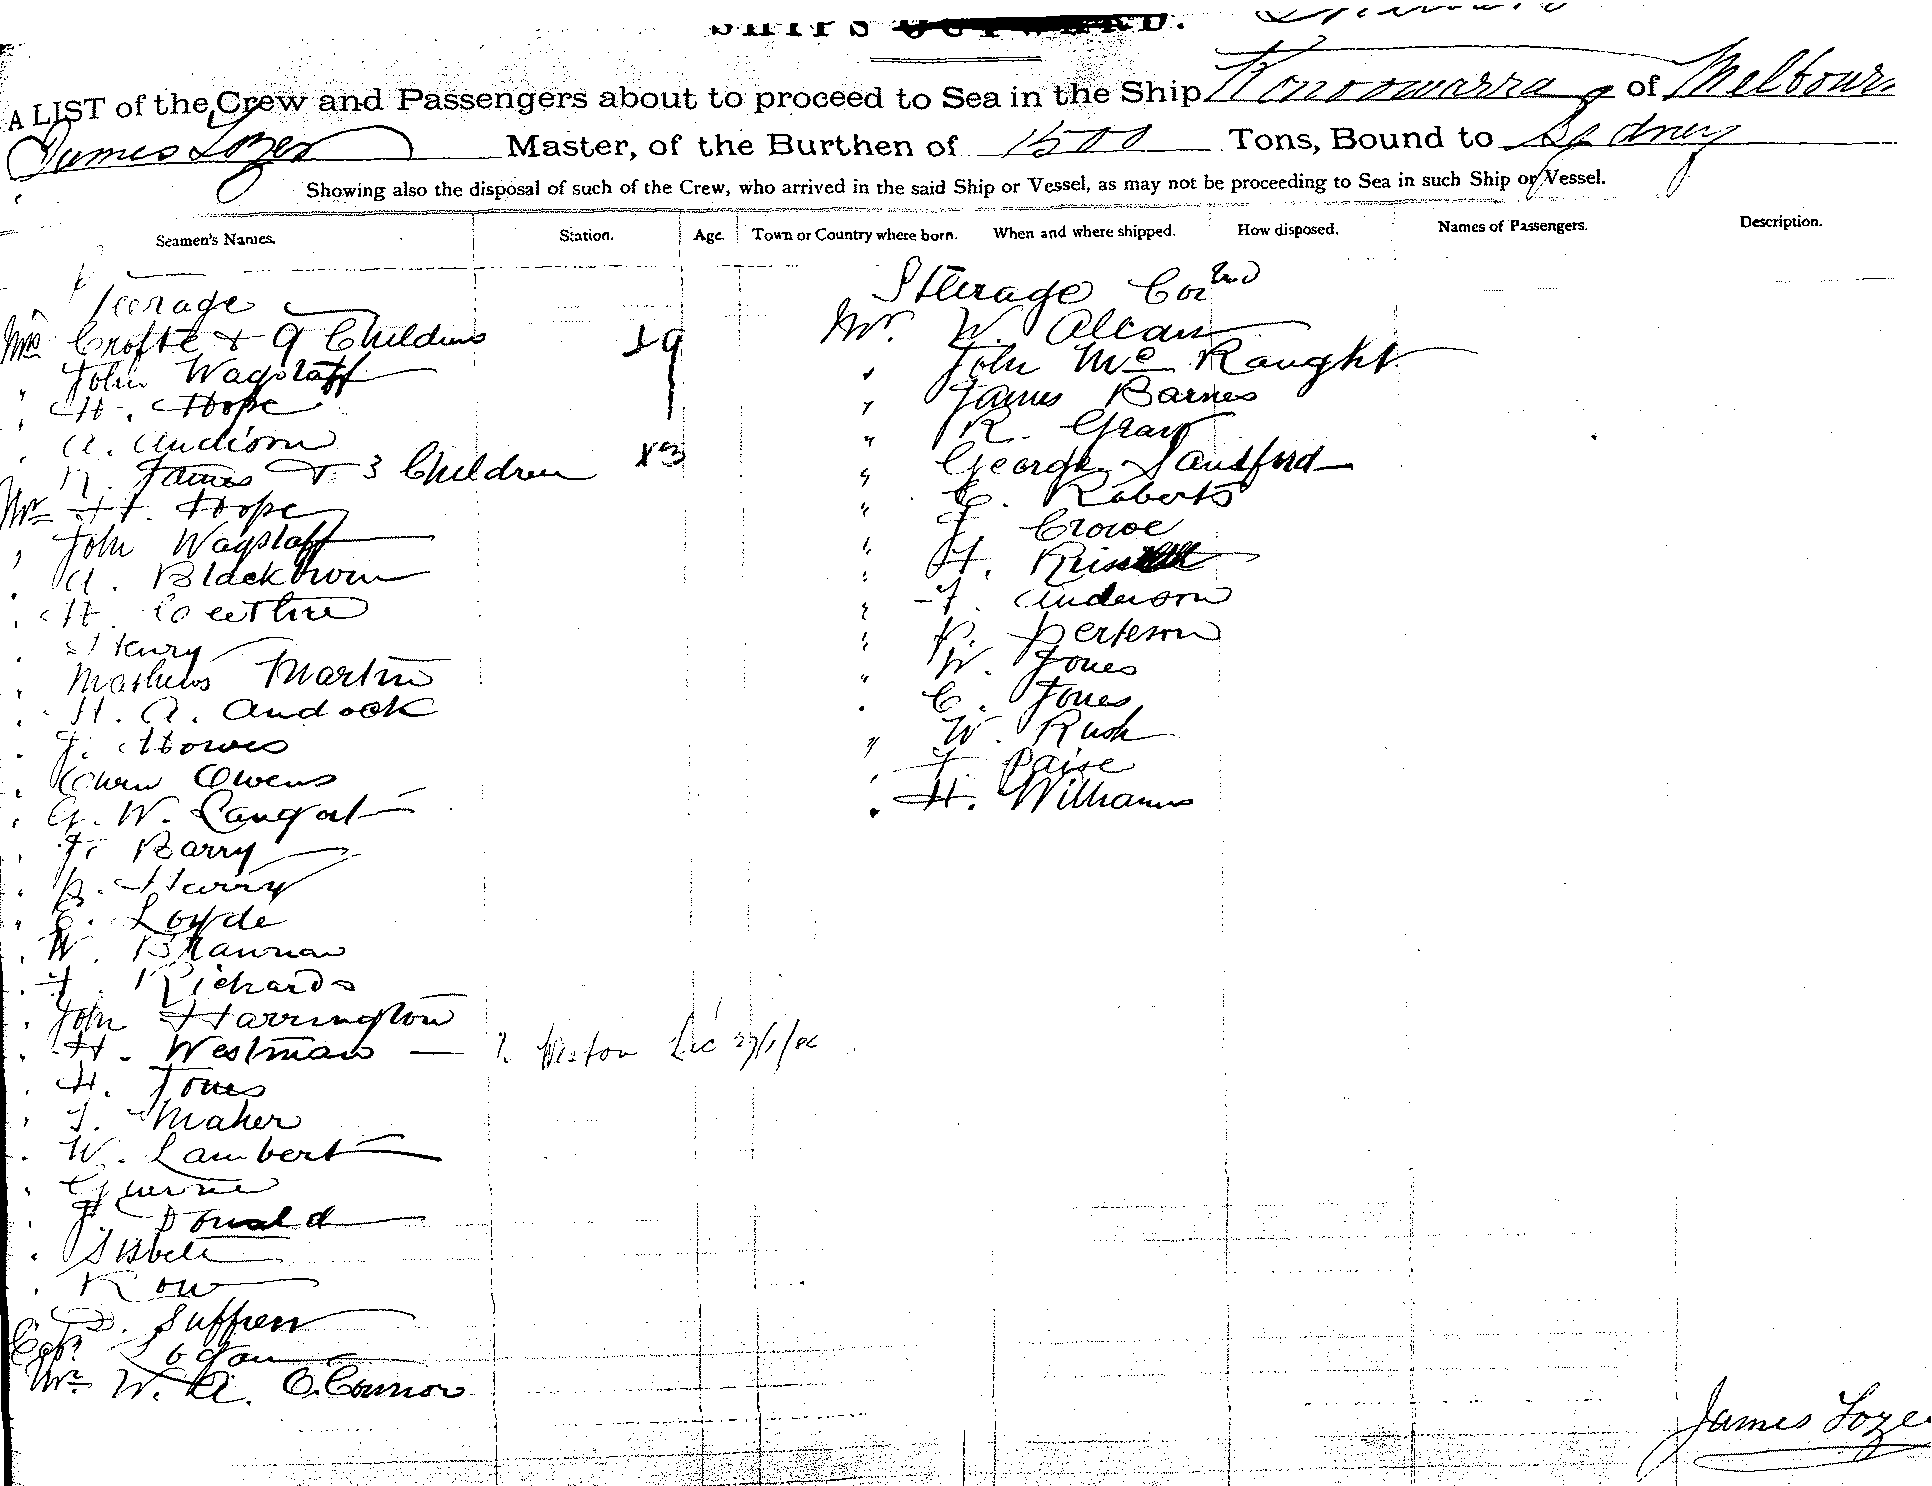 SHIPS OUTWARD.
A LIST of the Crew and Passengers about to proceed to Sea in the Ship Konoowarra of Melbour
James Lozer Master, of the Burthen of 1500 Tons, Bound to Sydney
Showing also the disposal of such of the Crew, who arrived in the said Ship or Vessel, as may not be proceeding to Sea in such Ship or Vessel.
Seamen's Names. Station. Age. Town or Country where born. When and where shipped. How disposed. Names of Passengers. Description.
Steerage
Mrs Crofte & 9 Children x9
" John Wagstaff
" H. Hope
" A. Andison
" N. James & 3 Children x3
Mr H. Hope
" John Wagstaff
" A. Blackbown
" H.
" Henry
" Mathews Martin
" H. A. Andock
" J. Howes
" Owen Owens
" G. W. Langat
" J. Barry
" B. Harry
" E. Loyde
" W. Brannan
" J. Richards
" John Harrington
" H. Westman — ? Weston
" H. Jones
" J. Maher
" W. Lambert
"
" Donald
"
" Row
D. Suffren
Capt Logan
Mr W. A. O'Connor
Steerage Con
Mr. W. Allan
" John Mc Raught
" James Barnes
" R. Gray
" George Sandford
" C. Roberts
" J. Crowe
" H.
" J. Anderson
" P. Perkson
" W. Jones
" C. Jones
" W. Rush
" J. Paise
" H. Williams
James Loze